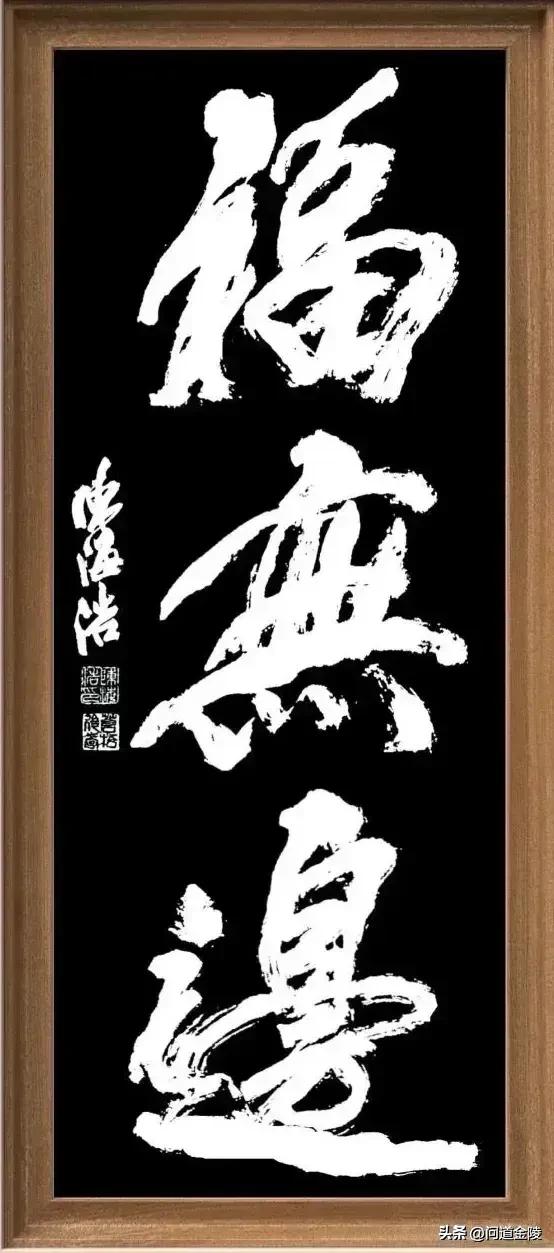 福無邊
陳海浩
头条 @问道金陵